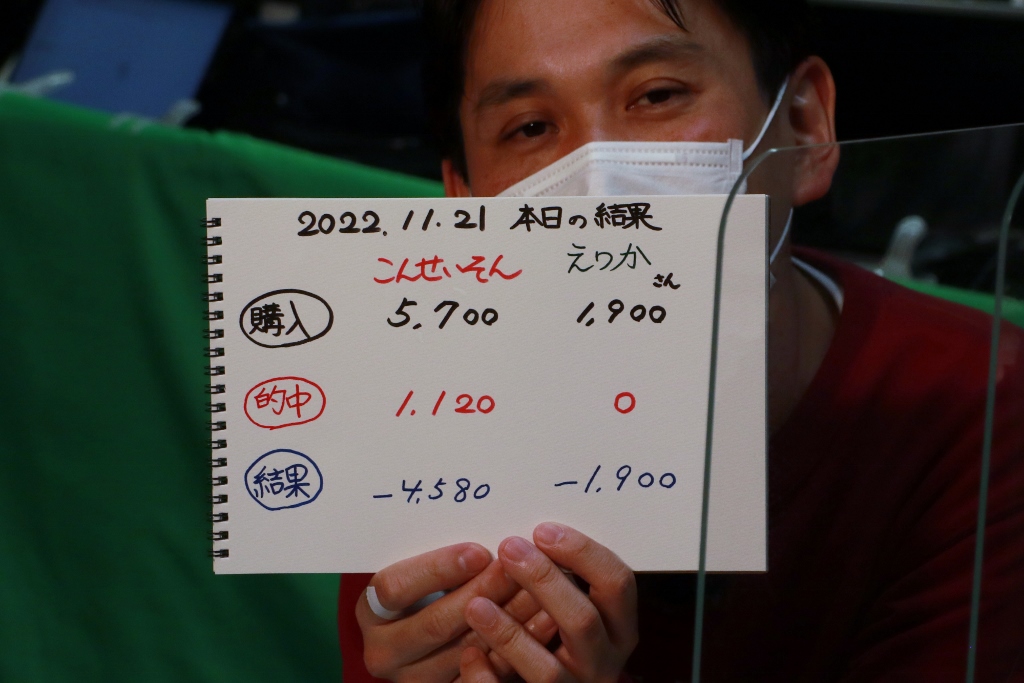 2022.11.21 本日の結果
こんせいそん えりか
さん
購入 5.700 1.900
的中 1.120 0
結果 -4.580 -1.900